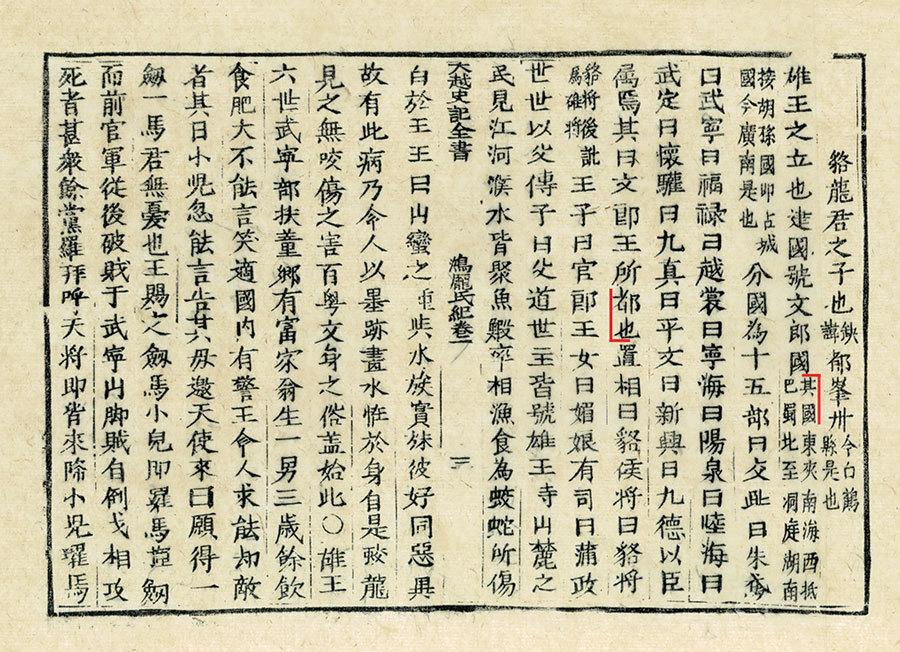 貉龍君之子也缺諱郁峯州今白鶴縣是也
雄王之立也建國號文郎國其國東夾南海西抵巴蜀北至洞庭湖南
接胡孫國即占城國今廣南是也分國為十五部曰交趾曰朱鳶
曰武寧曰福祿曰越裳曰寧海曰陽泉曰陸海曰
武定曰懷驩曰九真曰平文曰新興曰九德以臣
屬焉其曰文郎王所都也置相曰貉侯將曰貉將
貉將後訛為雄將王子曰官郎王女曰媚娘有司曰蒲政
世世以父傳子曰父道世主皆號雄王寺山麓之
民見江河濮水皆聚魚鰕率相漁食為蛟蛇所傷
大越史記全書 鴻厖氏紀卷一 三
白於王王曰山蠻之種與水族實殊彼好同惡異
故有此病乃令人以墨跡畫水怪於身自是蛟龍
見之無咬傷之害百粵文身之俗盖始此○雄王
六世武寧部扶董鄉有富家翁生一男三歲餘飲
食肥大不能言笑適國內有警王令人求能却敵
者其日小兒忽能言告其母邀天使來曰願得一
劔一馬君無憂也王賜之劔馬小兒即躍馬揮劔
而前官軍從後破賊于武寧山脚賊自倒戈相攻
死者甚衆餘黨羅拜呼天將即皆來降小兒躍馬